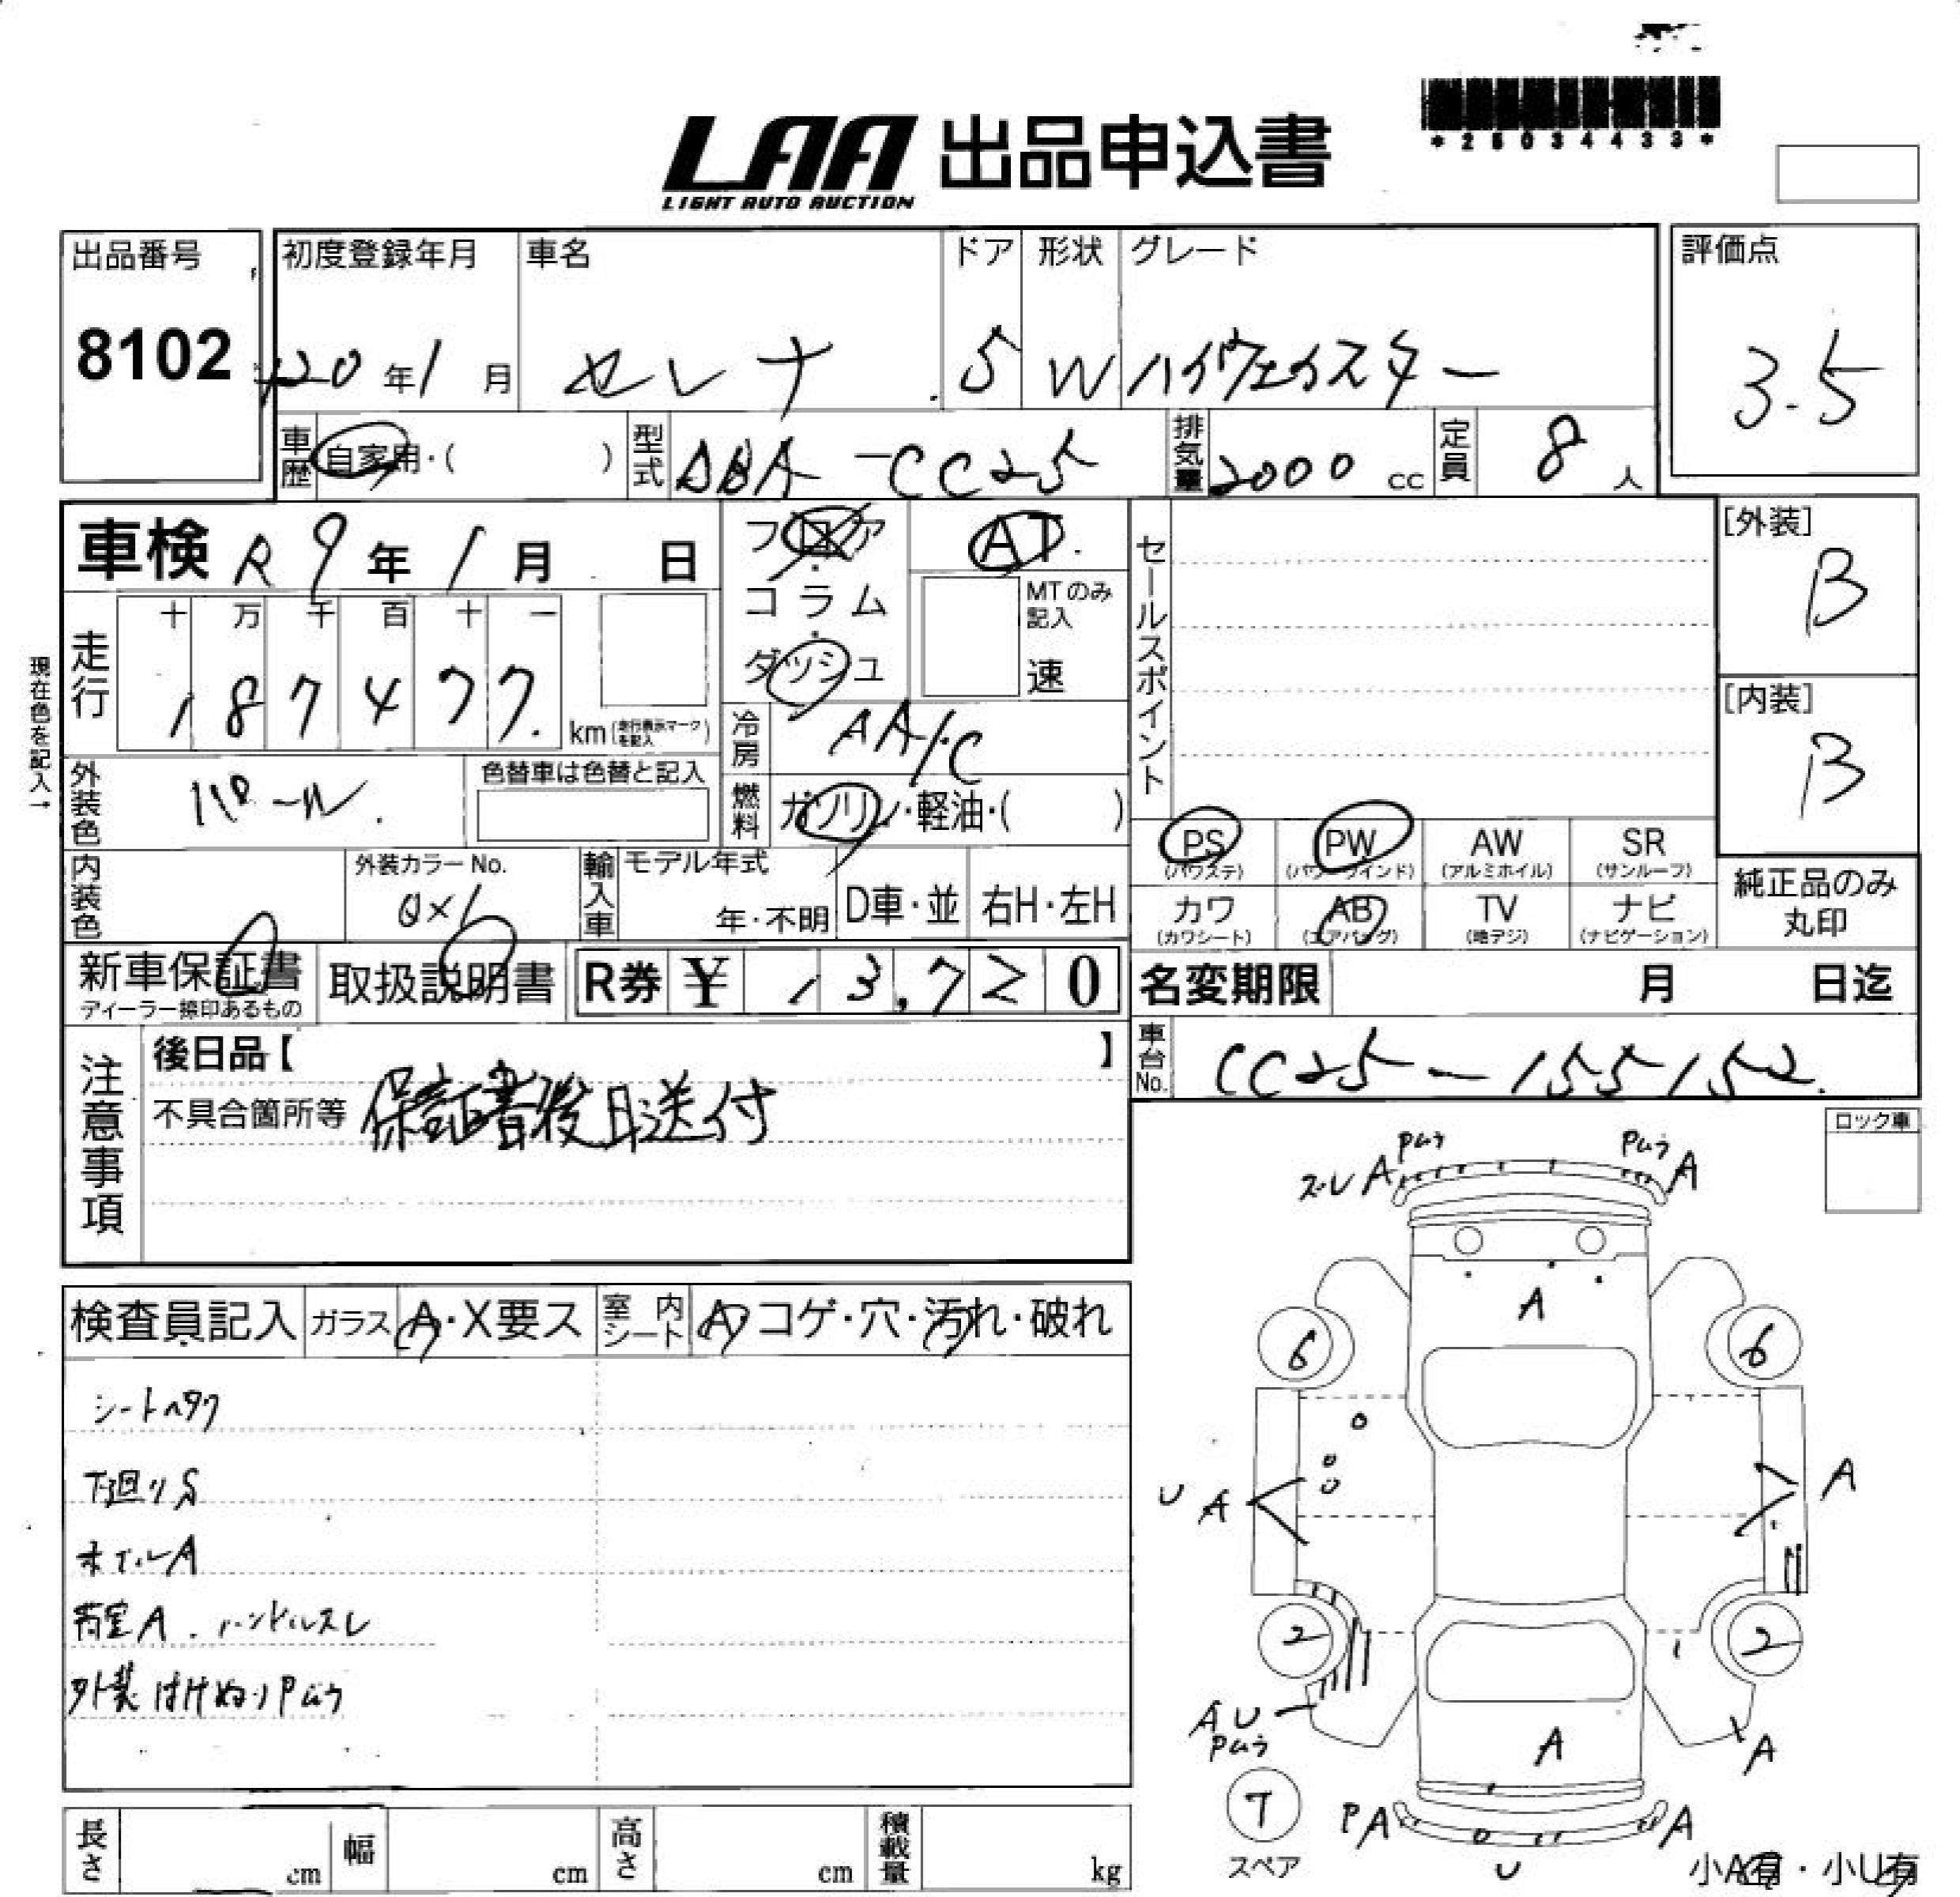 *25034433*
LAA 出品申込書
LIGHT AUTO AUCTION
出品番号 8102
初度登録年月 H20年1月
車名 セレナ
ドア 5
形状 W
グレード ハイウェイスター
評価点 3.5
車歴 自家用・( )
型式 DBA-CC25
排気量 2000 cc
定員 8人
車検 R9年1月 日
フロア・コラム・ダッシュ
AT
MTのみ記入 速
セールスポイント
[外装] B
[内装] B
現在色を記入→
走行 十 万 千 百 十 一
187477 km(走行表示マークを記入)
冷房 AA/C
燃料 ガソリン・軽油・( )
外装色 パール
色替車は色替と記入
内装色
外装カラーNo. QX1
輸入車 モデル年式 年・不明 D車・並 右H・左H
PS (パワステ) PW (パワーウインド) AW (アルミホイル) SR (サンルーフ)
カワ (カワシート) AB (エアバッグ) TV (地デジ) ナビ (ナビゲーション)
純正品のみ丸印
新車保証書 ディーラー捺印あるもの
取扱説明書
R券 ¥ 13,720
名変期限 月 日迄
車台No. CC25-155152
注意事項
後日品【 】
不具合箇所等 保証書後日送付
ロック車
検査員記入 ガラス A・X要ス 室内シート A コゲ・穴・汚れ・破れ
シートヘタリ
下廻りS
ホイルA
荷室A . ハンドルスレ
外装はけぬりPムラ
Pムラ Pムラ
ズレ A A
A
6 6
U A A
2 2
A U
Pムラ
A A
T スペア
P A A
U
小A有・小U有
長さ cm 幅 cm 高さ cm 積載量 kg